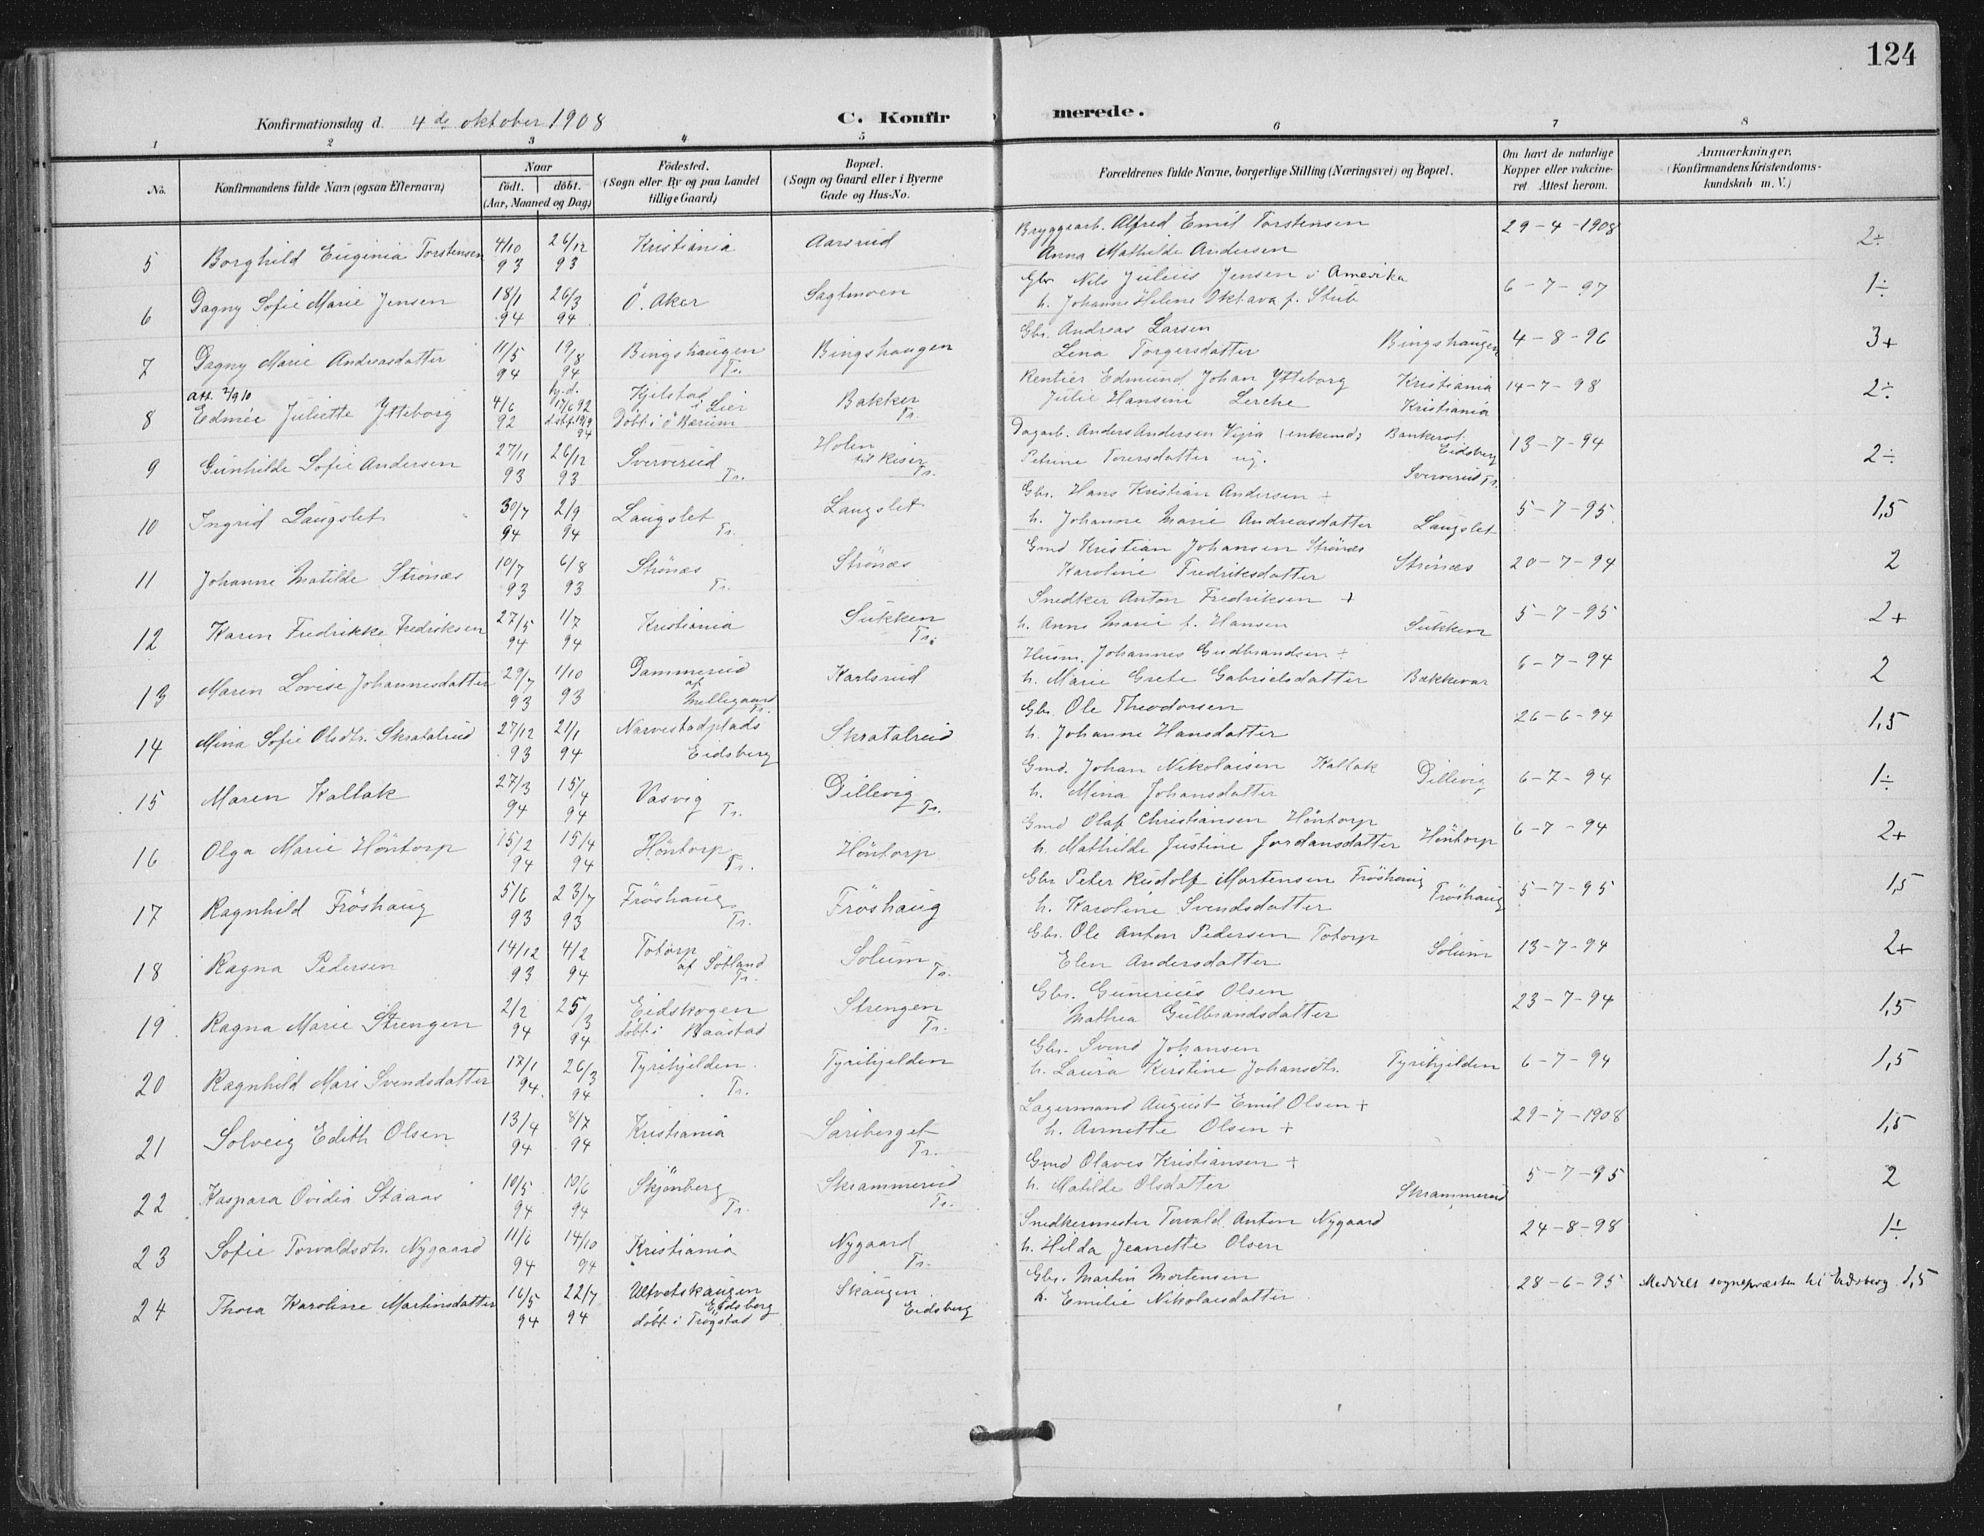 124
Konfirmationsdag d. 4de oktober 1908
C. Konfirmerede.
1 2 3 4 5 6 7 8
No.
Konfirmandens fulde Navn (ogsaa Efternavn)
Naar
födt. döbt.
(Aar, Maaned og Dag)
Födested.
(Sogn eller By og paa Landet
tillige Gaard)
Bopæl.
(Sogn og Gaard eller i Byerne
Gade og Hus-No.
Forældrenes fulde Navne, borgerlige Stilling (Næringsvei) og Bopæl.
Om havt de naturlige
Kopper eller vakcine-
ret Attest herom.
Anmærkninger.
(Konfirmandens Kristendoms-
kundskab m. V.)
5 Borghild Euginia Torstensen 4/10 93 26/12 93 Kristiania Aarsrud
Bryggearb. Alfred Emil Torstensen 29-4-1908 2÷
Anna Mathilde Andersen
6 Dagny Sofie Marie Jensen 18/1 94 26/3 94 Ö. Aker Sagtmoen
Gbr. Nils Julius Jensen i Amerika 6-7-97 1÷
h. Johanne Helene Oktava f. Stub
7 Dagny Marie Andreasdatter 11/5 94 19/8 94 Bingshaugen Tr. Bingshaugen
Gbr. Andreas Larsen Bingshaugen 4-8-96 3+
Lena Torgersdatter
att. 2/9 10
8 Edmée Juliette Ytteborg 4/6 92 hj.d. 17/6 92 94 Kjelstad i Lier Döbt i Ö Bærum Bakker Tr.
Rentier Edmund Johan Ytteborg Kristiania 14-7-98 2÷
Julie Hansine Lerche Kristiania
9 Gunhilde Sofie Andersen 27/11 93 26/12 93 Sververud Tr. Holen Tr.
Dagarb. Anders Andersen (enkemd) Eidsberg 13-7-94 2÷
Petrine Toresdatter ug. Sververud Tr.
10 Ingrid Langslet 30/7 94 2/9 94 Langslet Tr. Langslet
Gbr. Hans Kristian Andersen + 5-7-95 1,5
h. Johanne Marie Andreasdatter Langslet
11 Johanne Matilde Strönæs 10/7 93 6/8 93 Strönæs Tr. Strönæs
Gmd Kristian Johansen Strönæs Strönæs 20-7-94 2
Karoline Fredriksdatter
12 Karen Fredrikke Fredriksen 27/5 94 1/7 94 Kristiania Sukken Tr.
Snedker Anton Fredriksen + 5-7-95 2+
h. Anne Marie f. Hansen Sukken
13 Maren Lovise Johannesdatter 29/7 93 1/10 93 Dammerud af Melligaard Tr. Karlsrud
Husm. Johannes Gudbrandsen + 6-7-94 2
h. Marie Grete Gabrielsdatter Bækkevar
14 Mina Sofie Olsdtr. Skratalrud 27/12 93 21/1 94 Narvestadplads Eidsberg Skratalrud
Gbr. Ole Theodorsen 26-6-94 1,5
h. Johanne Hansdatter
15 Maren Kallak 27/3 94 15/4 94 Vasvig Tr. Dillevig Tr.
Gmd. Johan Nikolaisen Kallak Dillevig 6-7-94 1÷
h. Mina Johansdatter
16 Olga Marie Höntorp 15/2 94 15/4 94 Höntorp Tr. Höntorp
Gmd Olaf Christiansen Höntorp 6-7-94 2+
h. Mathilde Justine Jordansdatter Höntorp
17 Ragnhild Fröshaug 5/6 93 23/7 93 Fröshaug Tr. Fröshaug
Gbr Peter Rudolf Mortensen Fröshaug 5-7-95 1,5
h. Karoline Svendsdatter Fröshaug
18 Ragna Pedersen 14/12 93 4/2 94 Totorp af Sötland Tr. Solum Tr.
Gbr. Ole Anton Pedersen Totorp Solum 13-7-94 2+
Elen Andersdatter
19 Ragna Marie Strengen 2/2 94 25/3 94 Eidskogen döbt i Baastad Strengen Tr.
Gbr. Gunerius Olsen 23-7-94 1,5
Mathea Gulbrandsdatter
20 Ragnhild Mari Svendsdatter 17/1 94. 26/3 94 Tyrihjelden Tr. Tyrihjelden
Gbr. Svend Johansen 6-7-94 1,5
h. Laura Kirstine Johansdtr. Tyrihjelden
21 Solveig Edith Olsen 13/4 94 8/7 94 Kristiania Sariberget Tr.
Lagermand August Emil Olsen + 29-7-1908 1,5
h. Annette Olsen +
22 Kaspara Ovidia Staaas 10/5 94 10/6 94 Skjönberg Tr. Skrammerud Tr.
Gmd Olaves Kristiansen + 5-7-95 2
h. Matilde Olsdatter Skrammerud
23 Sofie Torvaldsdtr. Nygaard 11/6 94 14/10 94 Kristiania Nygaard Tr.
Snedkermester Torvald Anton Nygaard 24-8-98 1÷
h. Hilda Jeanette Olsen
24 Thora Karoline Martinsdatter 16/5 94 22/7 94 Ultvetskaugen Eidsberg döbt i Trögstad Skaugen Eidsberg
Gbr. Martin Mortensen 28-6-95 Meddelt sognepræsten til Eidsberg 1,5
h. Emilie Nikolaisdatter